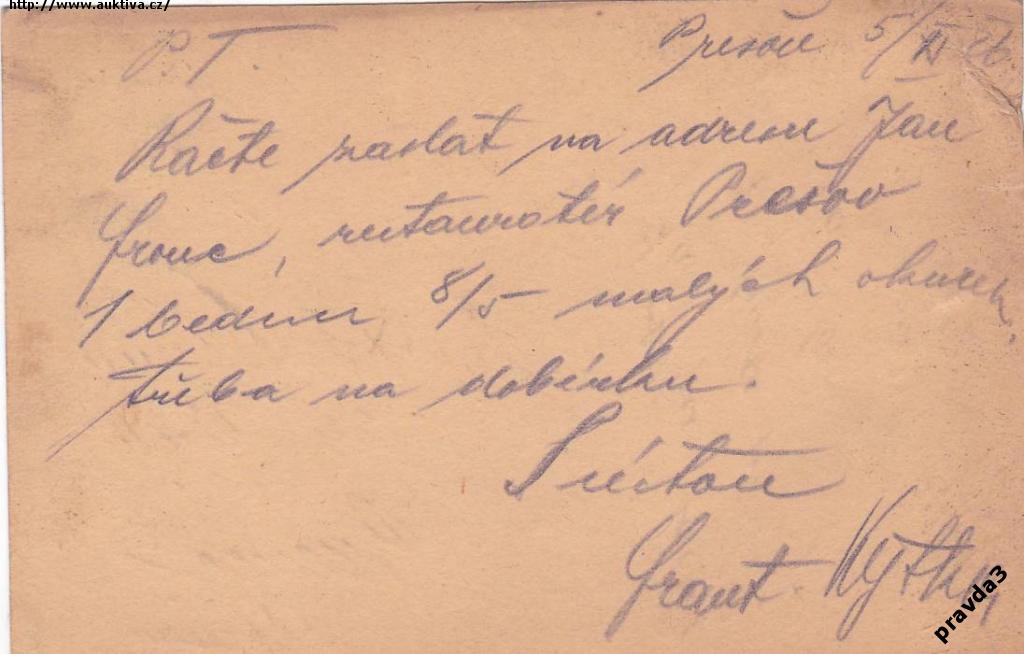 http://www.auktiva.cz/
P. T. Prešov 5/XI 26.
Ráčte zaslat na adresu Jan
Franc, restauratér Prešov
1 bednu 8/5 malých okurek,
třeba na dobírku.
S úctou
Frant.
pravda3